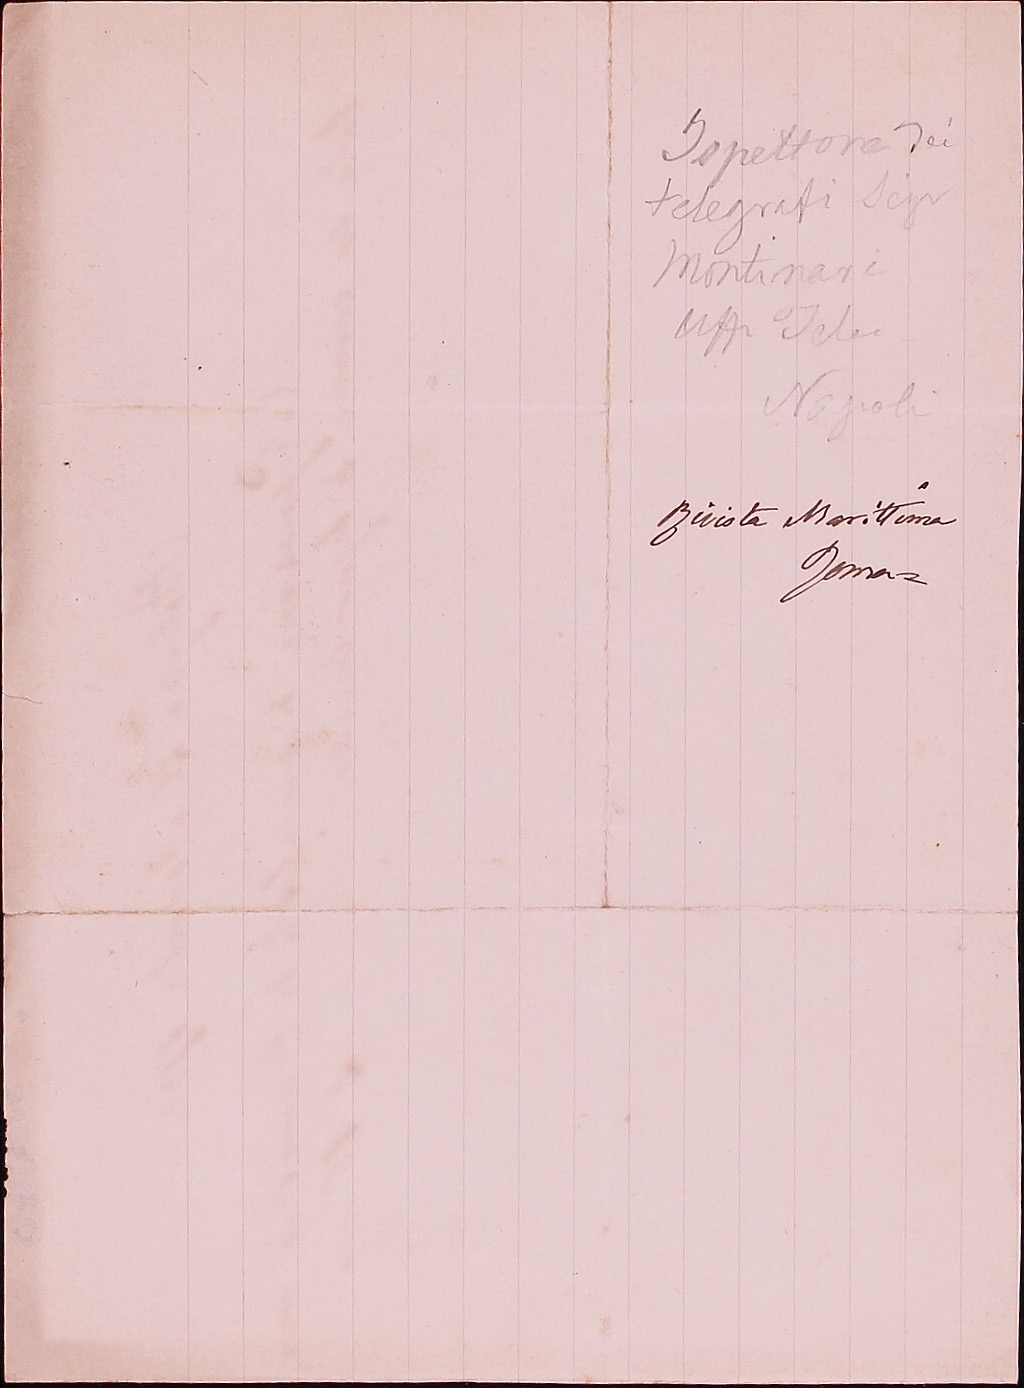 Ispettore dei
telegrafi Sigr
Montinari
Uffi Tele
Napoli
Rivista Marittima
Roma